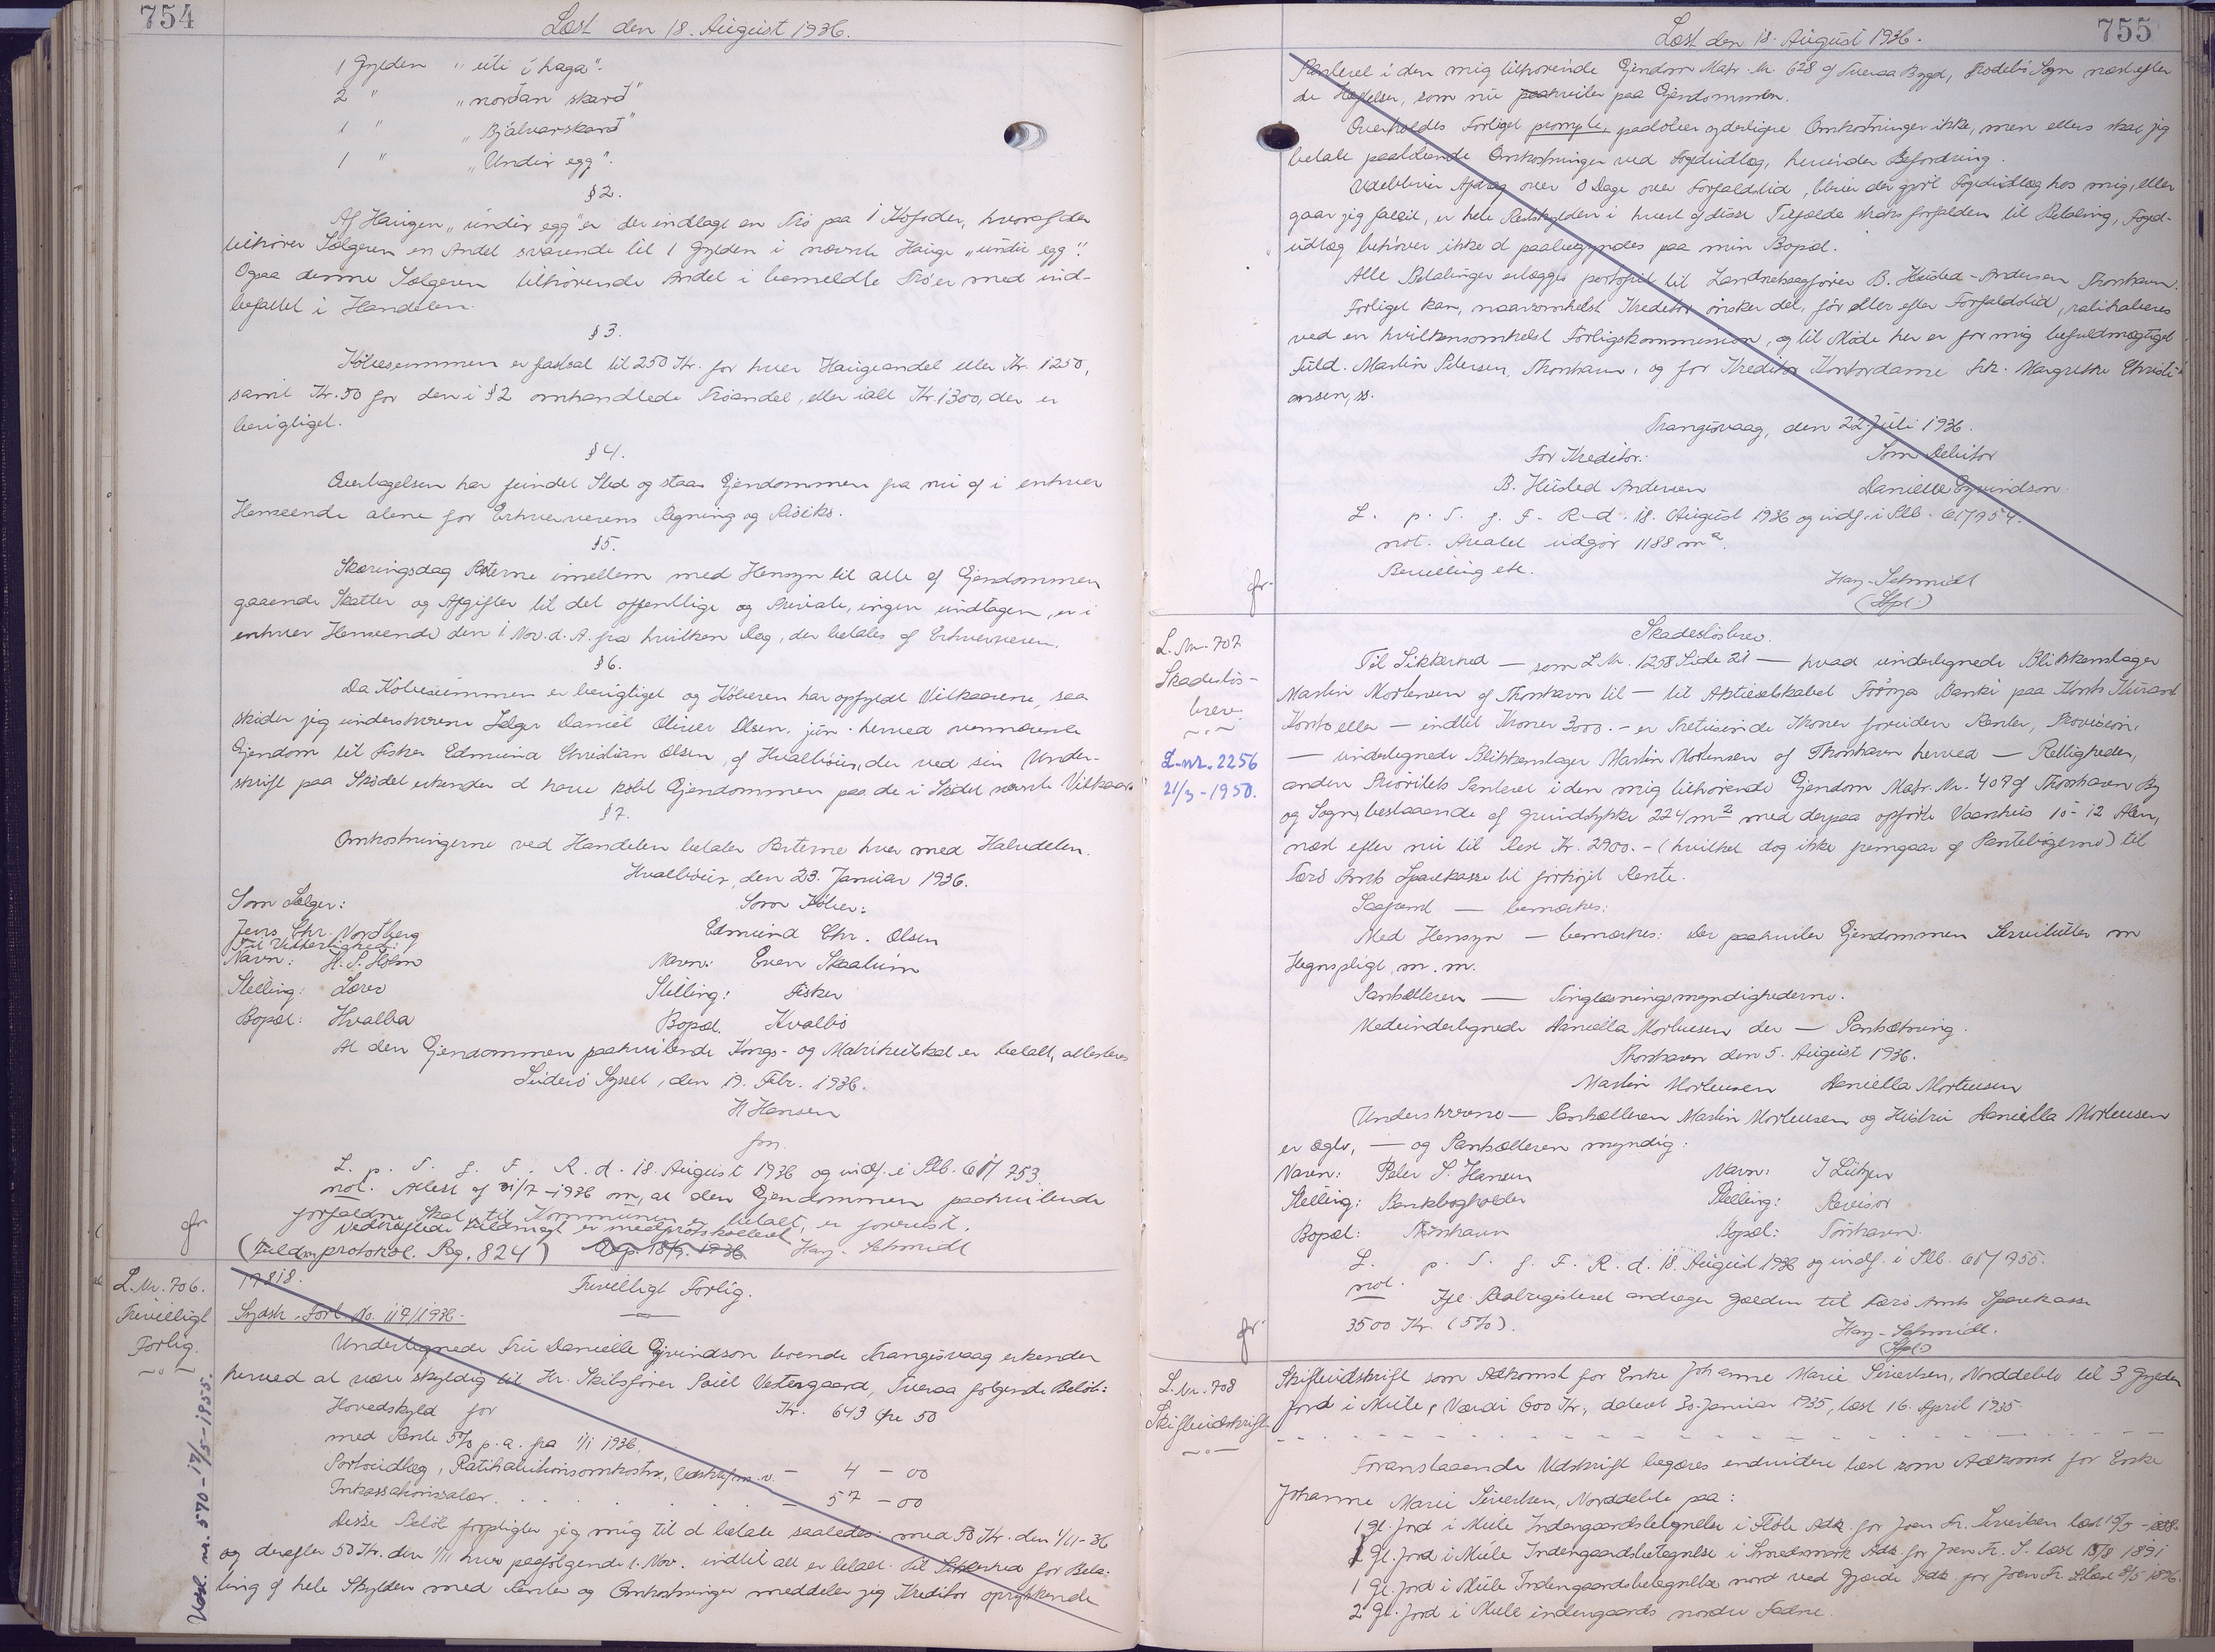 754
Læst den 18. August 1936.
1 Gylden „úti í haga“.
2 " „nordan skard“
1 " „Bjálvarskard“
1 " „Undir egg“.
§2.
Af Haugen „undir egg“ er der indlagt en Trö paa 1 Köfoder, hvoraf der
tilhører Sælgeren en Andel svarende til 1 Gylden i nævnte Hauge „undir egg“.
Ogsaa denne Sælgeren tilhørende Andel i bemeldte Trö er med ind-
befattet i Handelen.
§3.
Købesummen er fastsat til 250 Kr. for hver Haugeandel eller Kr. 1250,
samt Kr. 50 for den i §2 omhandlede Tröandel, eller ialt Kr. 1300, der er
berigtiget.
§4.
Overtagelsen har fundet Sted og staar Ejendommen fra nu af i enhver
Henseende alene for Erhververens Regning og Risiko.
§5.
Skæringsdag Parterne imellem med Hensyn til alle af Ejendommen
gaaende Skatter og Afgifter til det offentlige og Private, ingen undtagen, er i
enhver Henseende den 1 Nov. d. A. fra hvilken Dag, der betales af Erhververen.
§6.
Da Købesummen er berigtiget og Køberen har opfyldt Vilkaarene, saa
skøder jeg underskrevne Sælger Daniel Oliver Olsen, jún. herved ovennævnte
Ejendom til Fisker Edmund Christian Olsen, af Hvalböur, der ved sin Under-
skrift paa Skødet erkender at have købt Ejendommen paa de i Skødet nævnte Vilkaar.
§7.
Omkostningerne ved Handelen betaler Parterne hver med Halvdelen.
Hvalböur, den 23. Januar 1936.
Som Sælger: Som Køber:
Jens Chr. Nordberg Edmund Chr. Olsen
Til Vitterlighed:
Navn: H. P. Holm Navn: Even Skaalum
Stilling: Lærer Stilling: Fisker
Bopæl: Hvalba Bopæl. Hvalbö
At den Ejendommen paahvilende Kongs- og Matrikulskat er betalt, attesteres
Suderö Syssel, den 19. Febr. 1936.
H Hansen
fm.
L. p. T. f. F. R. d. 18. August 1936 og indf. i Plb. 61/753.
not. Attest af 31/7-1936 om, at den Ejendommen paahvilende
forfaldne Skat til Kommunen er betalt, er forevist.
Vedhæftede Fuldmagt er medprotokolleret
(Fuldm protokol. Pag. 824) Exp. 18/9. 1936 Hay-Schmidt
fr
L. Nr. 706.
Frivilligt
Forlig.
17818.
Frivilligt Forlig.
Sydstr. Forl. No. 119/1936.
Undertegnede Fru Danielle Eyvindson boende Trangisvaag erkender
herved at være skyldig til Hr. Skibsfører Poul Vestergaard, Tveraa følgende Beløb:
Hovedskyld for Kr. 643 Øre 50
med Rente 5% p. a. fra 1/1 1936.
Portoudlæg, Ratihabitionsomkostn., Udskrift m. v. — 4 — 00
Inkassationssalær. — 57 — 00
Disse Beløb forpligter jeg mig til at betale saaledes: med 50 Kr. den 1/11-36
og derefter 50 Kr. den 1/11 hver paafølgende 1. Nov. indtil alt er betalt. Til Sikkerhed for Beta-
ling af hele Skylden med Renter og Omkostninger meddeler jeg Kreditor oprykkende
Udsl. nr. 570 - 17/5 - 1955.
755
Læst den 18. August 1936.
Panteret i den mig tilhørende Ejendom Matr. Nr. 628 af Tveraa Bygd, Frodebö Sogn næst efter
de Hæftelser, som nu paahviler paa Ejendommen.
Overholdes Forliget prompte, paaløber yderligere Omkostninger ikke, men ellers skal jeg
betale paaløbende Omkostninger ved Fogedudlæg, herunder Befordring.
Udebliver Afdrag over 8 Dage over Forfaldstid, bliver der gjort Fogedudlæg hos mig, eller
gaar jeg fallit, er hele Restskylden i hvert af disse Tilfælde straks forfalden til Betaling, Foged-
udlæg behøver ikke at paabegyndes paa min Bopæl.
Alle Betalinger erlægges portofrit til Landsretssagfører B. Husted-Andersen Thorshavn.
Forliget kan, naarsomhelst Kreditor ønsker det, før eller efter Forfaldstid, ratihaberes
ved en hvilkensomhelst Forligskommission, og til Møde her er for mig befuldmægtiget
Fuld. Martin Petersen, Thorshavn, og for Kreditor Kontordame Frk. Margrethe Christi-
ansen, ss.
Trangisvaag, den 22 Juli 1936.
For Kreditor: Som Debitor
B. Husted Andersen Danielle Eyvindson
L. p. T. f. F. R. d. 18. August 1936 og indf. i Plb. 61/754.
not. Arealet udgør 1188 m².
Bevilling etc.
Hay-Schmidt
(Hfpl.)
fr.
L. Nr. 707
Skadesløs-
brev.
L.nr. 2256
21/3-1950.
Skadesløsbrev.
Til Sikkerhed — som L. Nr. 1258 Side 21 — hvad undertegnede Blikkenslager
Martin Mortensen af Thorshavn til — til Aktieselskabet Föroya Banki paa Konto Kurant
Konto eller — indtil Kroner 3000.- er Tretusinde Kroner foruden Renter, Provision,
— undertegnede Blikkenslager Martin Mortensen af Thorshavn herved — Rettigheder,
anden Prioritets Panteret i den mig tilhørende Ejendom Matr. Nr. 407 af Thorshavn By
og Sogn, bestaaende af Grundstykke 224 m² med derpaa opførte Vaaningshus 10-12 Alen,
næst efter nu til Rest Kr. 2900.- (hvilket dog ikke fremgaar af Pantebøgerne) til
Færö Amts Sparekasse til forhøjet Rente.
Saafremt — bemærkes:
Med Hensyn — bemærkes: Der paahviler Ejendommen Servitutter om
Hegnspligt, m. m.
Panthaveren — Tinglæsningsmyndighederne.
Medundertegnede Daniella Mortensen der — Pantsætning.
Thorshavn den 5. August 1936.
Martin Mortensen Daniella Mortensen
Underskrevne — Pantsætteren Martin Mortensen og Hustru Daniella Mortensen
er ægte, — og Pantsætteren myndig:
Navn: Peter S. Hansen Navn: J Lützen
Stilling: Bankbogholder Stilling: Revisor
Bopæl: Thorshavn Bopæl: Torshavn
L. p. T. f. F. R. d. 18. August 1936 og indf. i Plb. 61/755.
not.
Ifl. Realregisteret andrager Gælden til Færö Amts Sparekasse
3500 Kr. (5%).
Hay-Schmidt.
(Hfpl.)
fr.
L. Nr. 708
Skifteudskrift
Skifteudskrift som Adkomst for Enke Johanne Marie Sivertsen, Norddeble til 3 Gylden
Jord i Mule, Værdi 600 Kr., dateret 30. Januar 1935, læst 16. April 1935.
Foranstaaende Udskrift begæres endvidere læst som Adkomst for Enke
Johanne Marie Sivertsen, Norddeble paa:
1 Gl. Jord i Mule Indengaardsbetegnelse i Fløle Adk. for Joen Fr. Sivertsen læst
1 Gl. Jord i Mule Indengaardsbetegnelse i Adk. for Joen Fr. S. læst 1891
1 Gl. Jord i Mule Indengaardsbetegnelse nord ved Gjærde Adk. for Joen Fr. S. læst 1896.
2 Gl. Jord i Mule indengaards nordre